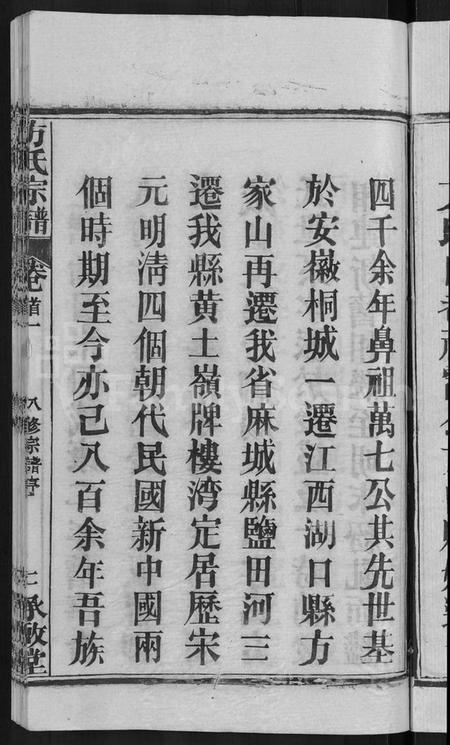 四千余年鼻祖萬七公共先世基
於安徽桐城一遷江西湖口縣方
家山再遷我省麻城縣鹽田河三
遷我縣黄土嶺牌樓湾定居歷宋
元明清四個朝代民國新中國兩
個時期至今亦已八百余年吾族
方氏宗譜
卷首一
八修宗譜序
承啟堂